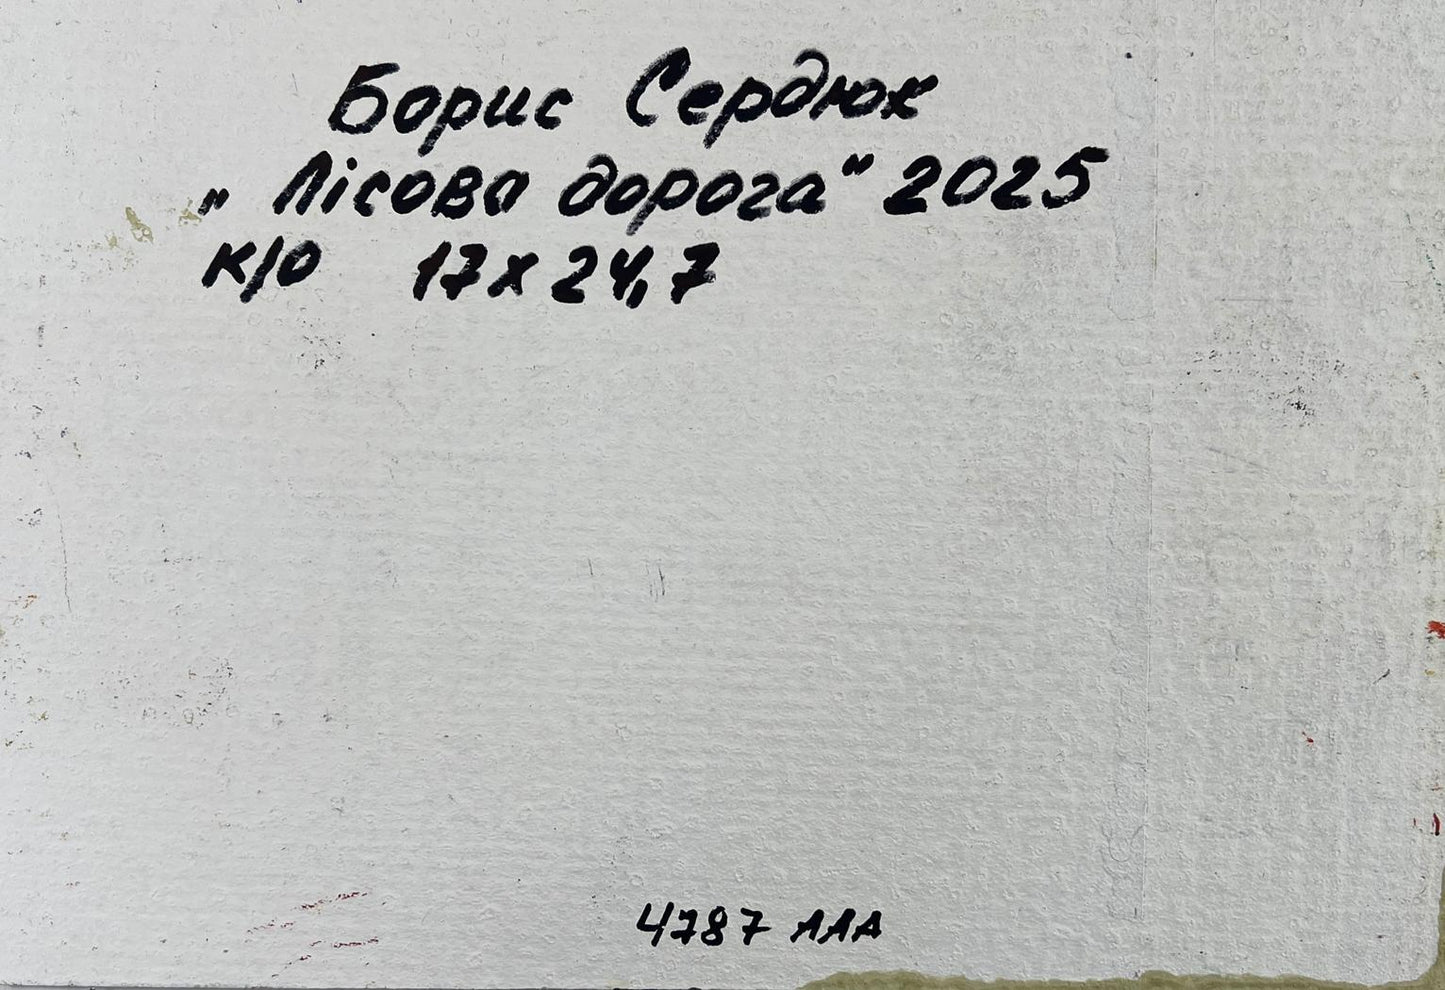 Борис Сердюк
„Лісова дорога" 2025
к/о 17х24,7
4787 ААА